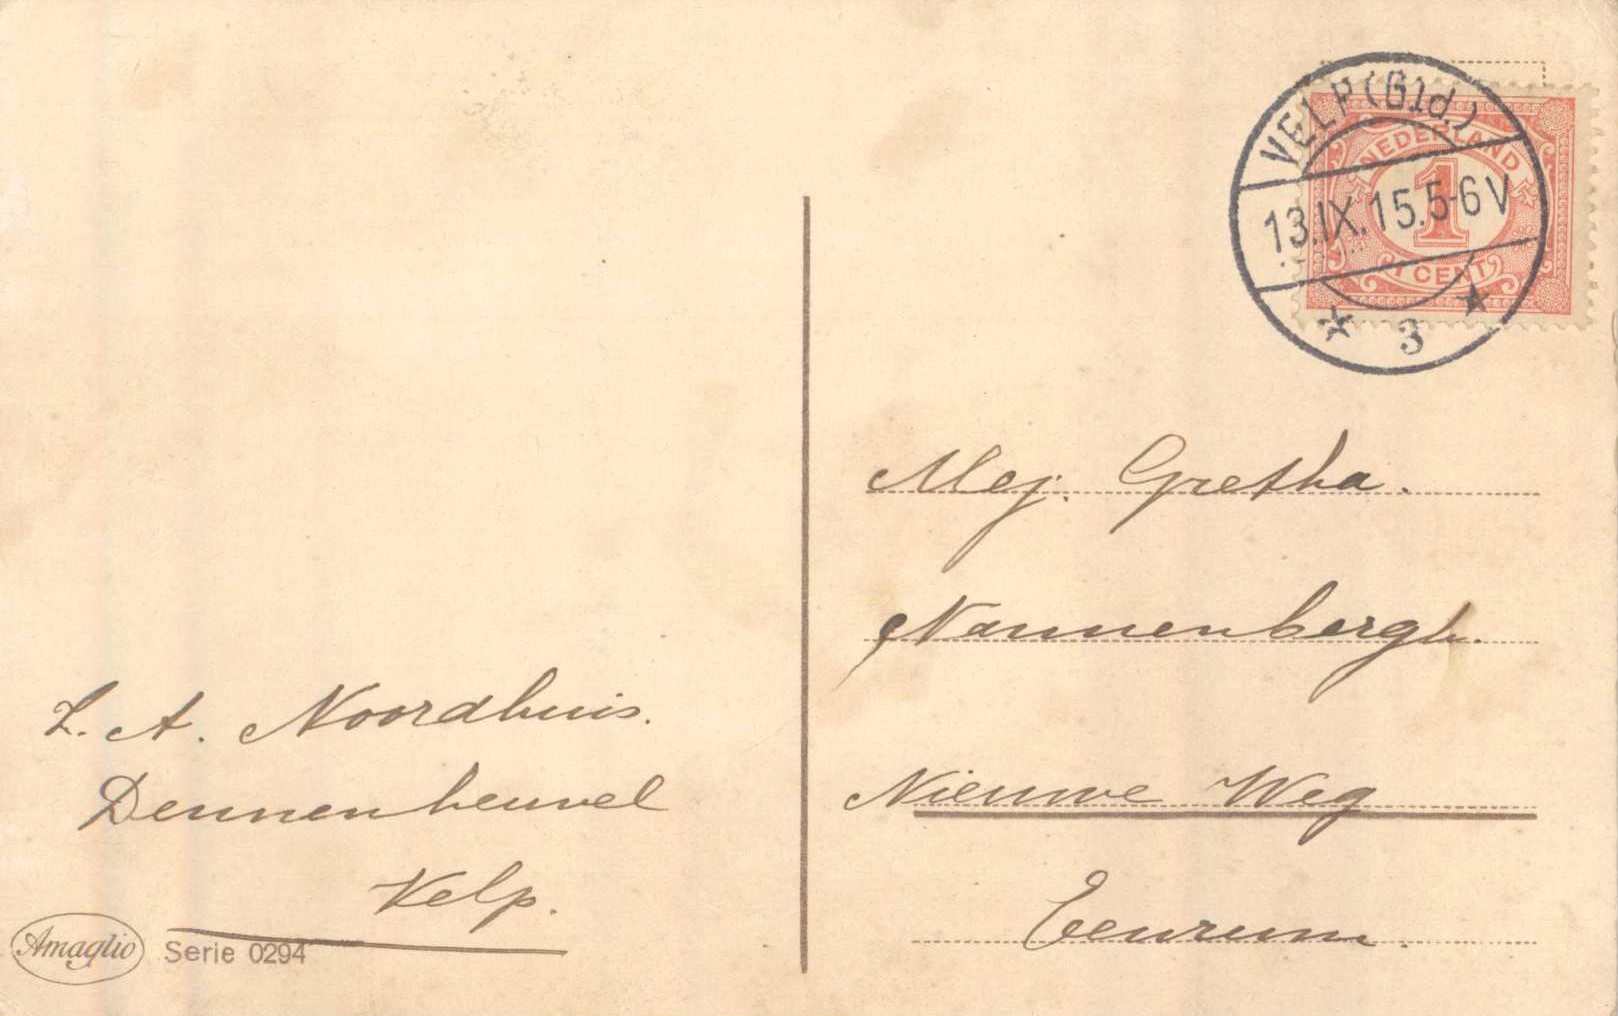 VELP (Gld.)
13.IX.15.5-6 V
3
NEDERLAND
1
1 CENT
Mej. Gretha.
Nannenbergh.
Nieuwe Weg
Eenrum.
L. A. Noordhuis.
Dennenheuvel
Velp.
Amaglio Serie 0294